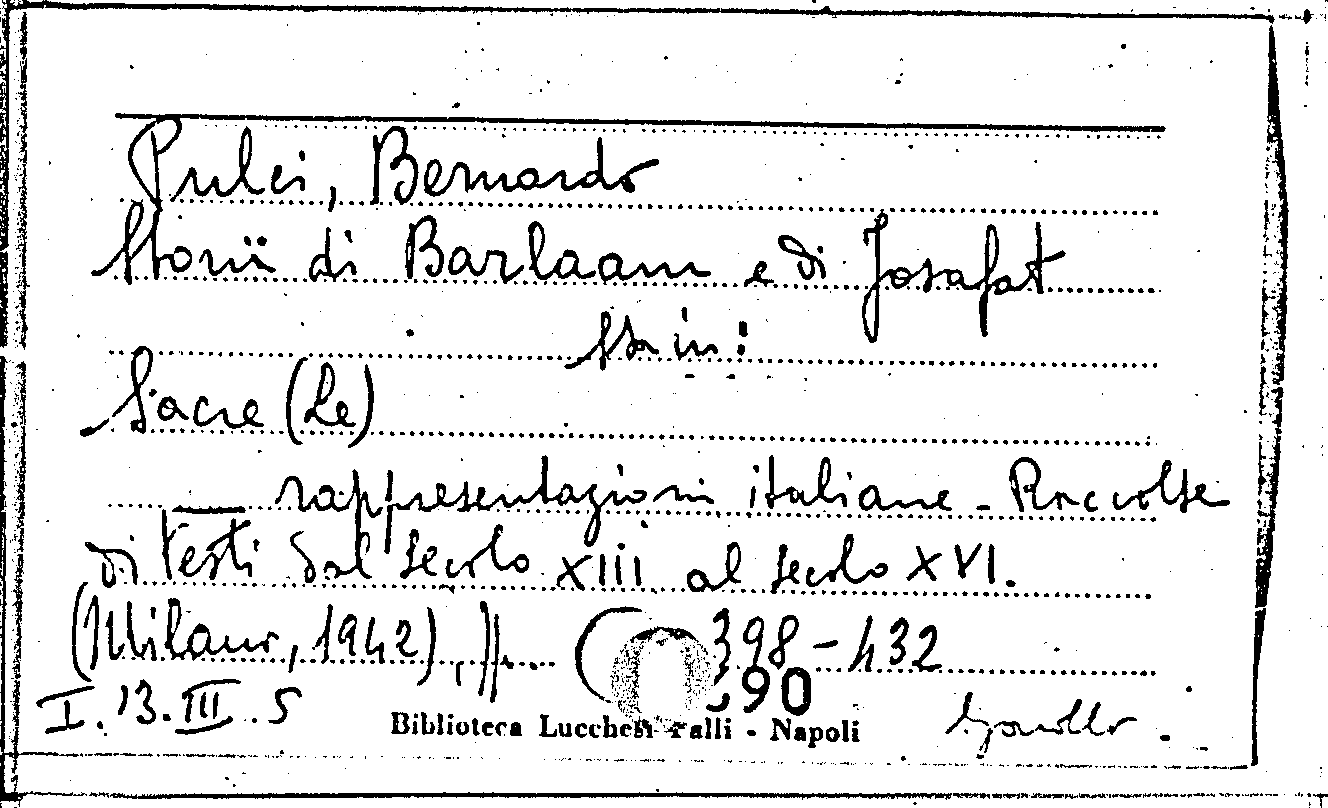 Pulci, Bernardo
Storia di Barlaam e di Josafat
Sta in:
Sacre (Le)
— rappresentazioni italiane - Raccolte
di testi dal secolo XIII al secolo XVI.
(Milano, 1942), pp. 398-432
I. 13. III. 5
90
Biblioteca Lucchesi Palli - Napoli